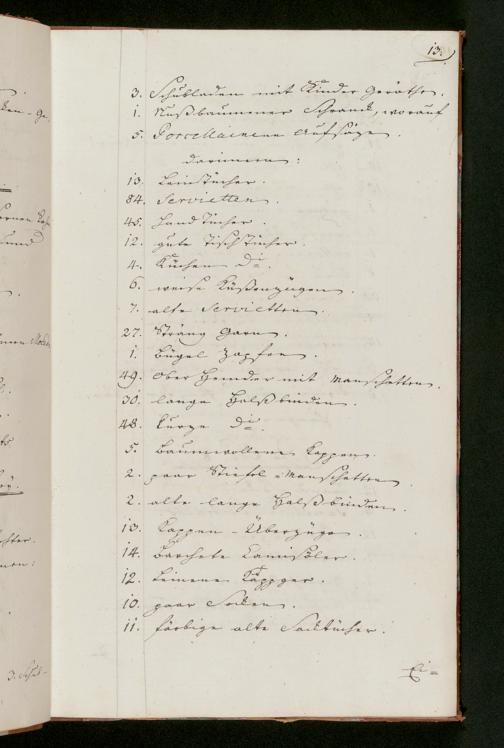 13.
3. Schubladen mit Kinder Geräthen.
1. Nußbaumener Schranck, worauf
5. Porcellainene Aufsäze.
darinnen:
13. Leintücher.
84. Servietten.
45. Handtücher.
12. gute Tischtücher.
4. Küchen Do.
6. weise Küßenzügen.
7. alte Servietten.
27. Sträng Garn.
1. Bügel Zapfen.
49. Ober Hemder mit Manschetten.
30. lange Halßbinden.
48. kurze Do.
5. baumwollene Kappen.
2. paar Stiefel-Manschetten.
2. alte lange Halßbinden.
13. Kappen-Überzüge.
14. barchete Camisöler.
12. leinene Käppger.
10. paar Socken.
11. färbige alte Sacktücher.
Ei=
3. Schub-